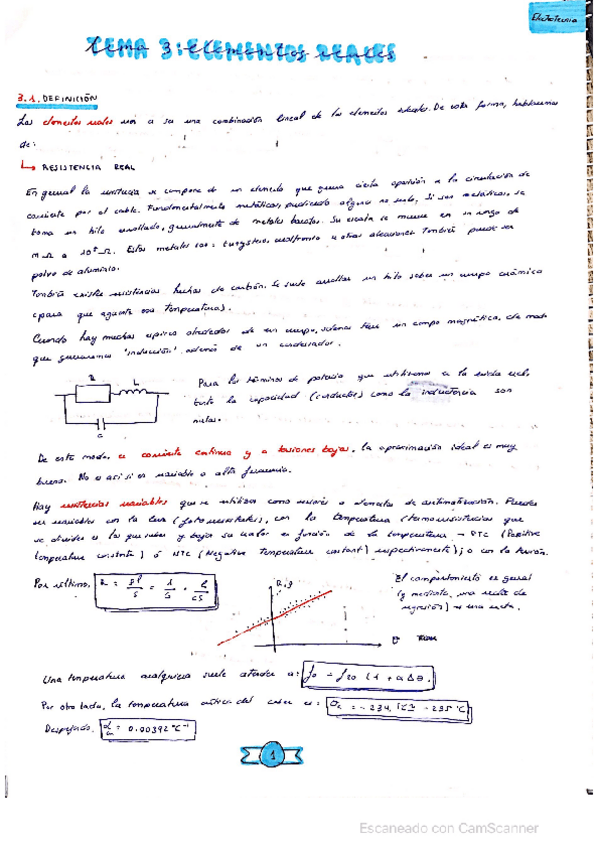 Electrotecnia
Tema 3: ELEMENTOS REALES
3.1. DEFINICIÓN
Los elementos reales van a ser una combinación lineal de los elementos ideales. De esta forma, hablaremos
de:
↳ RESISTENCIA REAL
En general la resistencia se compone de un elemento que genera cierta oposición a la circulación de
corriente por el cable. Fundamentalmente metálicas, pudiendo alguna no serlo. Si son metálicas, se
toma un hilo enrollado, generalmente de metales baratos. Su escala se mueve en un rango de
Estos metales son: tungsteno, u otras aleaciones. También puede ser
polvo de aluminio.
También existen resistencias hechas de carbón. Se suele arrollar un hilo sobre un cuerpo cerámico
(para que aguante esa temperatura).
Cuando hay muchas espiras alrededor de un cuerpo, además tiene un campo magnético, de modo
que generaremos "inducción" además de un condensador.
R L
C
Para los términos de potencia que utilizamos en la vida real,
tanto la capacidad (conductor) como la inductancia son
nulas.
De este modo, en corriente continua y a tensiones bajas, la aproximación ideal es muy
buena. No es así si es variable o alta frecuencia.
Hay resistencias variables que se utilizan como sensores o elementos de automatización. Pueden
ser variables con la luz (fotorresistencias), con la temperatura (termorresistencias que
se dividen en las que suben y bajan su valor en función de la temperatura → PTC (Positive
temperature constant) ó NTC (Negative temperature constant) respectivamente); o con la tensión.
Por último, R = ρl/S = 1/σ · l/S
R, ρ
El comportamiento en general
(y mediante una recta de
regresión) es una recta.
θ
Una temperatura cualquiera suele atender a: ρθ = ρ20 (1 + α Δθ).
Por otro lado, la temperatura crítica del cobre es: θc = -234,5°C ≈ -235°C
Despejado, α = 0.00392 °C⁻¹
1
Escaneado con CamScanner